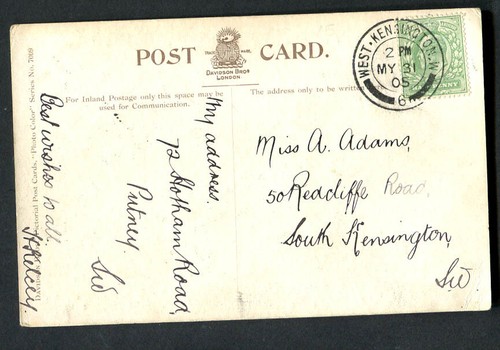 POST CARD.
DAVIDSON BROS
LONDON
For Inland Postage only this space may be
used for Communication.
The address only to be written
WEST·KENSINGTON.W
2 PM
MY 31
05
6
PENNY
My address.
72 Hotham Road,
Putney
SW
Best wishes to all.
H Kelcey.
Pictorial Post Cards. "Photo Color" Series No. 7009
Miss A. Adams,
50 Redcliffe Road,
South Kensington,
SW